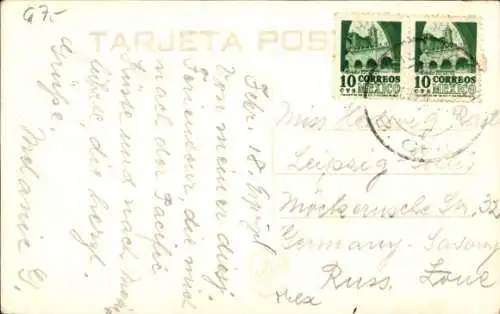 67.-
TARJETA POST
10 CORREOS
CTS MEXICO
10 CORREOS
CTS MEXICO
Febr. 18.
Von meiner diesj.
die mich
nach der Pacific
Küste und nach
führte, die herzl.
Grüße,
Melanie G.
Miss Hedwig
Leipzig
Möckernsche Str. 32
Germany - Saxony
Russ. Zone